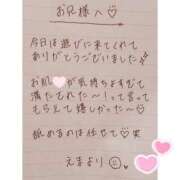 お兄様へ♡
今日は遊びに来てくれて
ありがとうございました
お肌が気持ちよすぎて
満たされた〜!って言って
もらえて嬉しかった〜♡
舐めるのは任せて♡笑
えまより☺